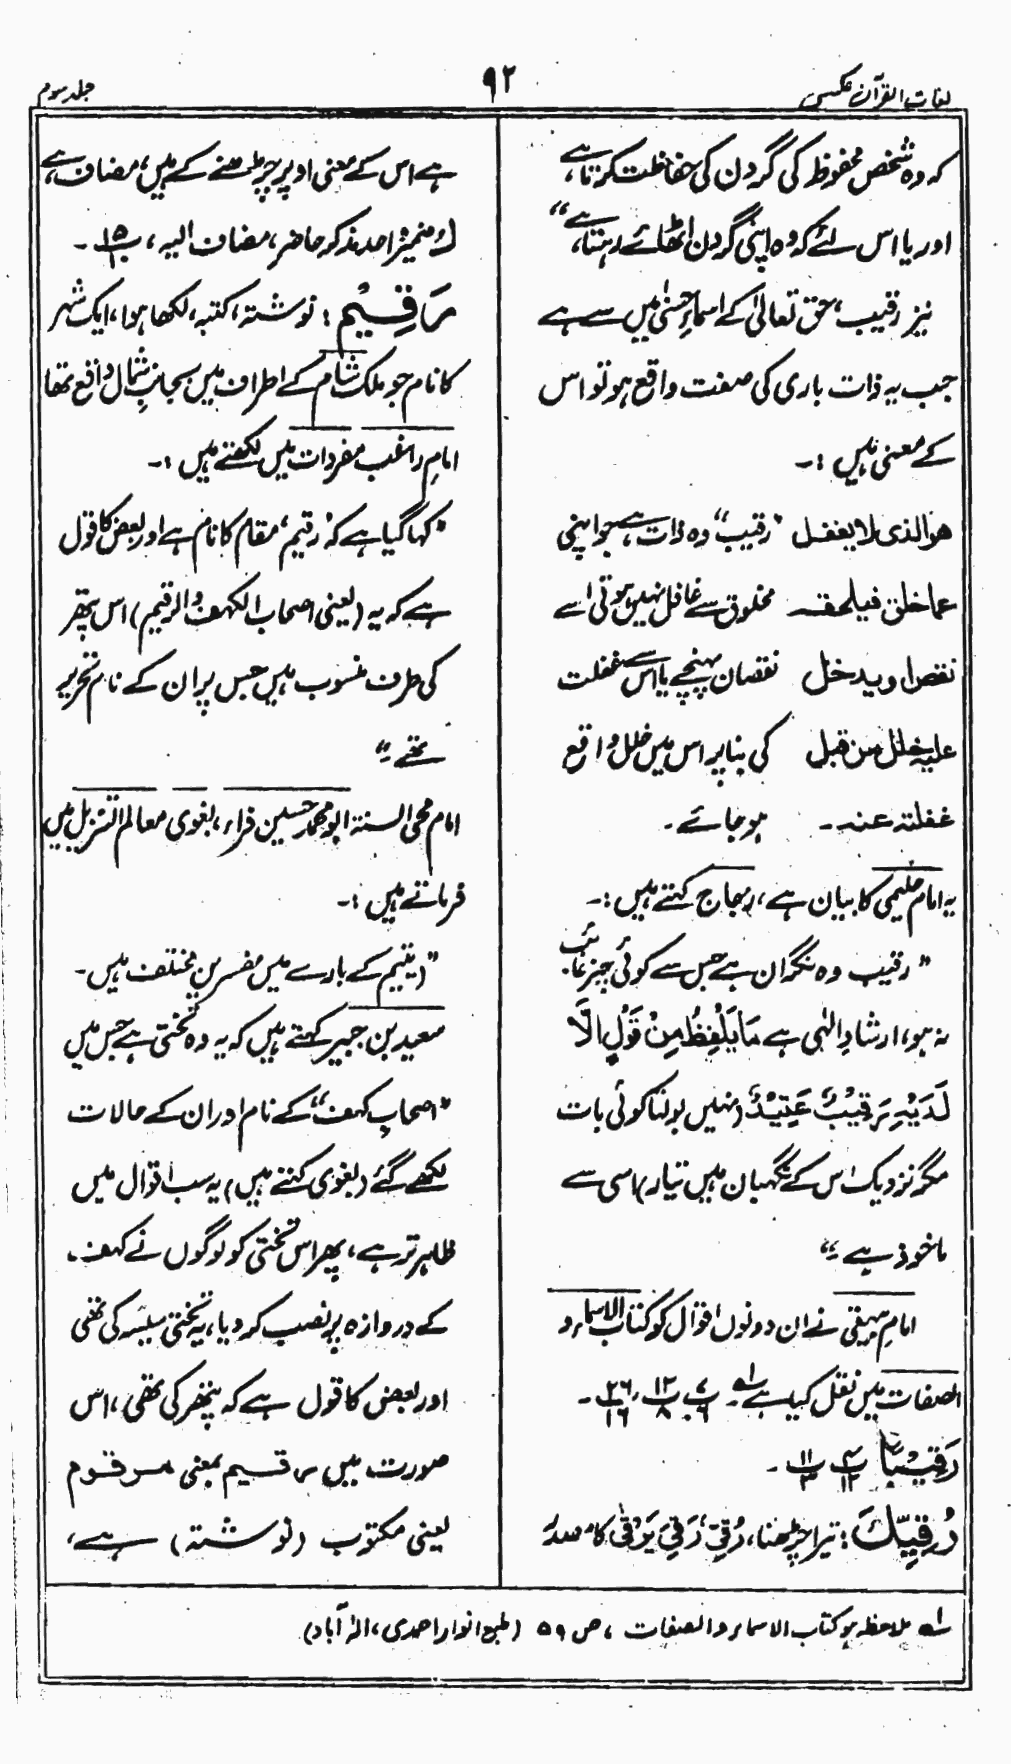 لغات القرآن عکسی
۹۲
جلد سوم
کہ وہ شخص محفوظ کی گردن کی حفاظت کرتا ہے،
اور یا اس لئے کہ وہ اپنی گردن اٹھائے رہتا ہے،“
نیز رقیب، حق تعالیٰ کے اسماءِ حسنیٰ میں سے ہے
جب یہ ذات باری کی صفت واقع ہو تو اس
کے معنی ہیں :۔
ھو الذی لا یغفل ”رقیب“ وہ ذات ہے جو اپنی
عما خلق فیلحقہ مخلوق سے غافل نہیں ہوتی اسے
نقص او یدخل نقصان پہنچے یا اس سے غفلت
علیہ خلل من قبل کی بنا پر اس میں خلل واقع
غفلتہ عنہ۔ ہو جائے۔
یہ امام حلیمی کا بیان ہے، زجاج کہتے ہیں :۔
”رقیب وہ نگران ہے جس سے کوئی چیز غائب
نہ ہو، ارشادِ الٰہی ہے مَا یَلْفِظُ مِنْ قَوْلٍ اِلَّا
لَدَیْہِ رَقِیْبٌ عَتِیْدٌ (نہیں بولتا کوئی بات
مگر نزدیک اس کے نگہبان ہیں تیار) اسی سے
ماخوذ ہے“
امام بیہقی نے ان دونوں اقوال کو کتاب الاسماء و
الصفات میں نقل کیا ہے۔ لہ پ۴/۶ پ۱۲/۸ پ۲۶/۱۶۔
رَقِیْبًا پ۴/۱۲ پ۱۱/۳۔
رُقِیِّكَ: تیرا چڑھنا، رُقِیّ، رَقِیَ یَرْقٰی کا مصدر
ہے اس کے معنی اوپر چڑھنے کے ہیں، مضاف ہے،
كَ ضمیر واحد مذکر حاضر، مضاف الیہ، پ۱۵/۱۰۔
رَقِیْم: نوشتہ، کتبہ، لکھا ہوا، ایک شہر
کا نام جو ملک شام کے اطراف میں بجانبِ شمال واقع تھا
امام راغب مفردات میں لکھتے ہیں :۔
”کہا گیا ہے کہ ’رقیم‘ مقام کا نام ہے اور بعض کا قول
ہے کہ یہ (یعنی اصحاب الکہف والرقیم) اس پتھر
کی طرف منسوب ہیں جس پر ان کے نام تحریر
تھے“
امام محی السنۃ ابو محمد حسین فراء، بغوی معالم التنزیل میں
فرماتے ہیں :۔
”رقیم کے بارے میں مفسرین مختلف ہیں۔
سعید بن جبیر کہتے ہیں کہ یہ وہ تختی ہے جس میں
”اصحابِ کہف“ کے نام اور ان کے حالات
لکھے گئے (بغوی کہتے ہیں) یہ سب اقوال میں
ظاہر تر ہے، پھر اس تختی کو لوگوں نے کہف
کے دروازہ پر نصب کر دیا، یہ تختی سیسہ کی تھی
اور بعض کا قول ہے کہ پتھر کی تھی، اس
صورت میں رقیم بمعنی مرقوم
یعنی مکتوب (نوشتہ) ہے،
لہ ملاحظہ ہو کتاب الاسماء والصفات، ص ۵۹ (طبع انوار احمدی، الہ آباد)